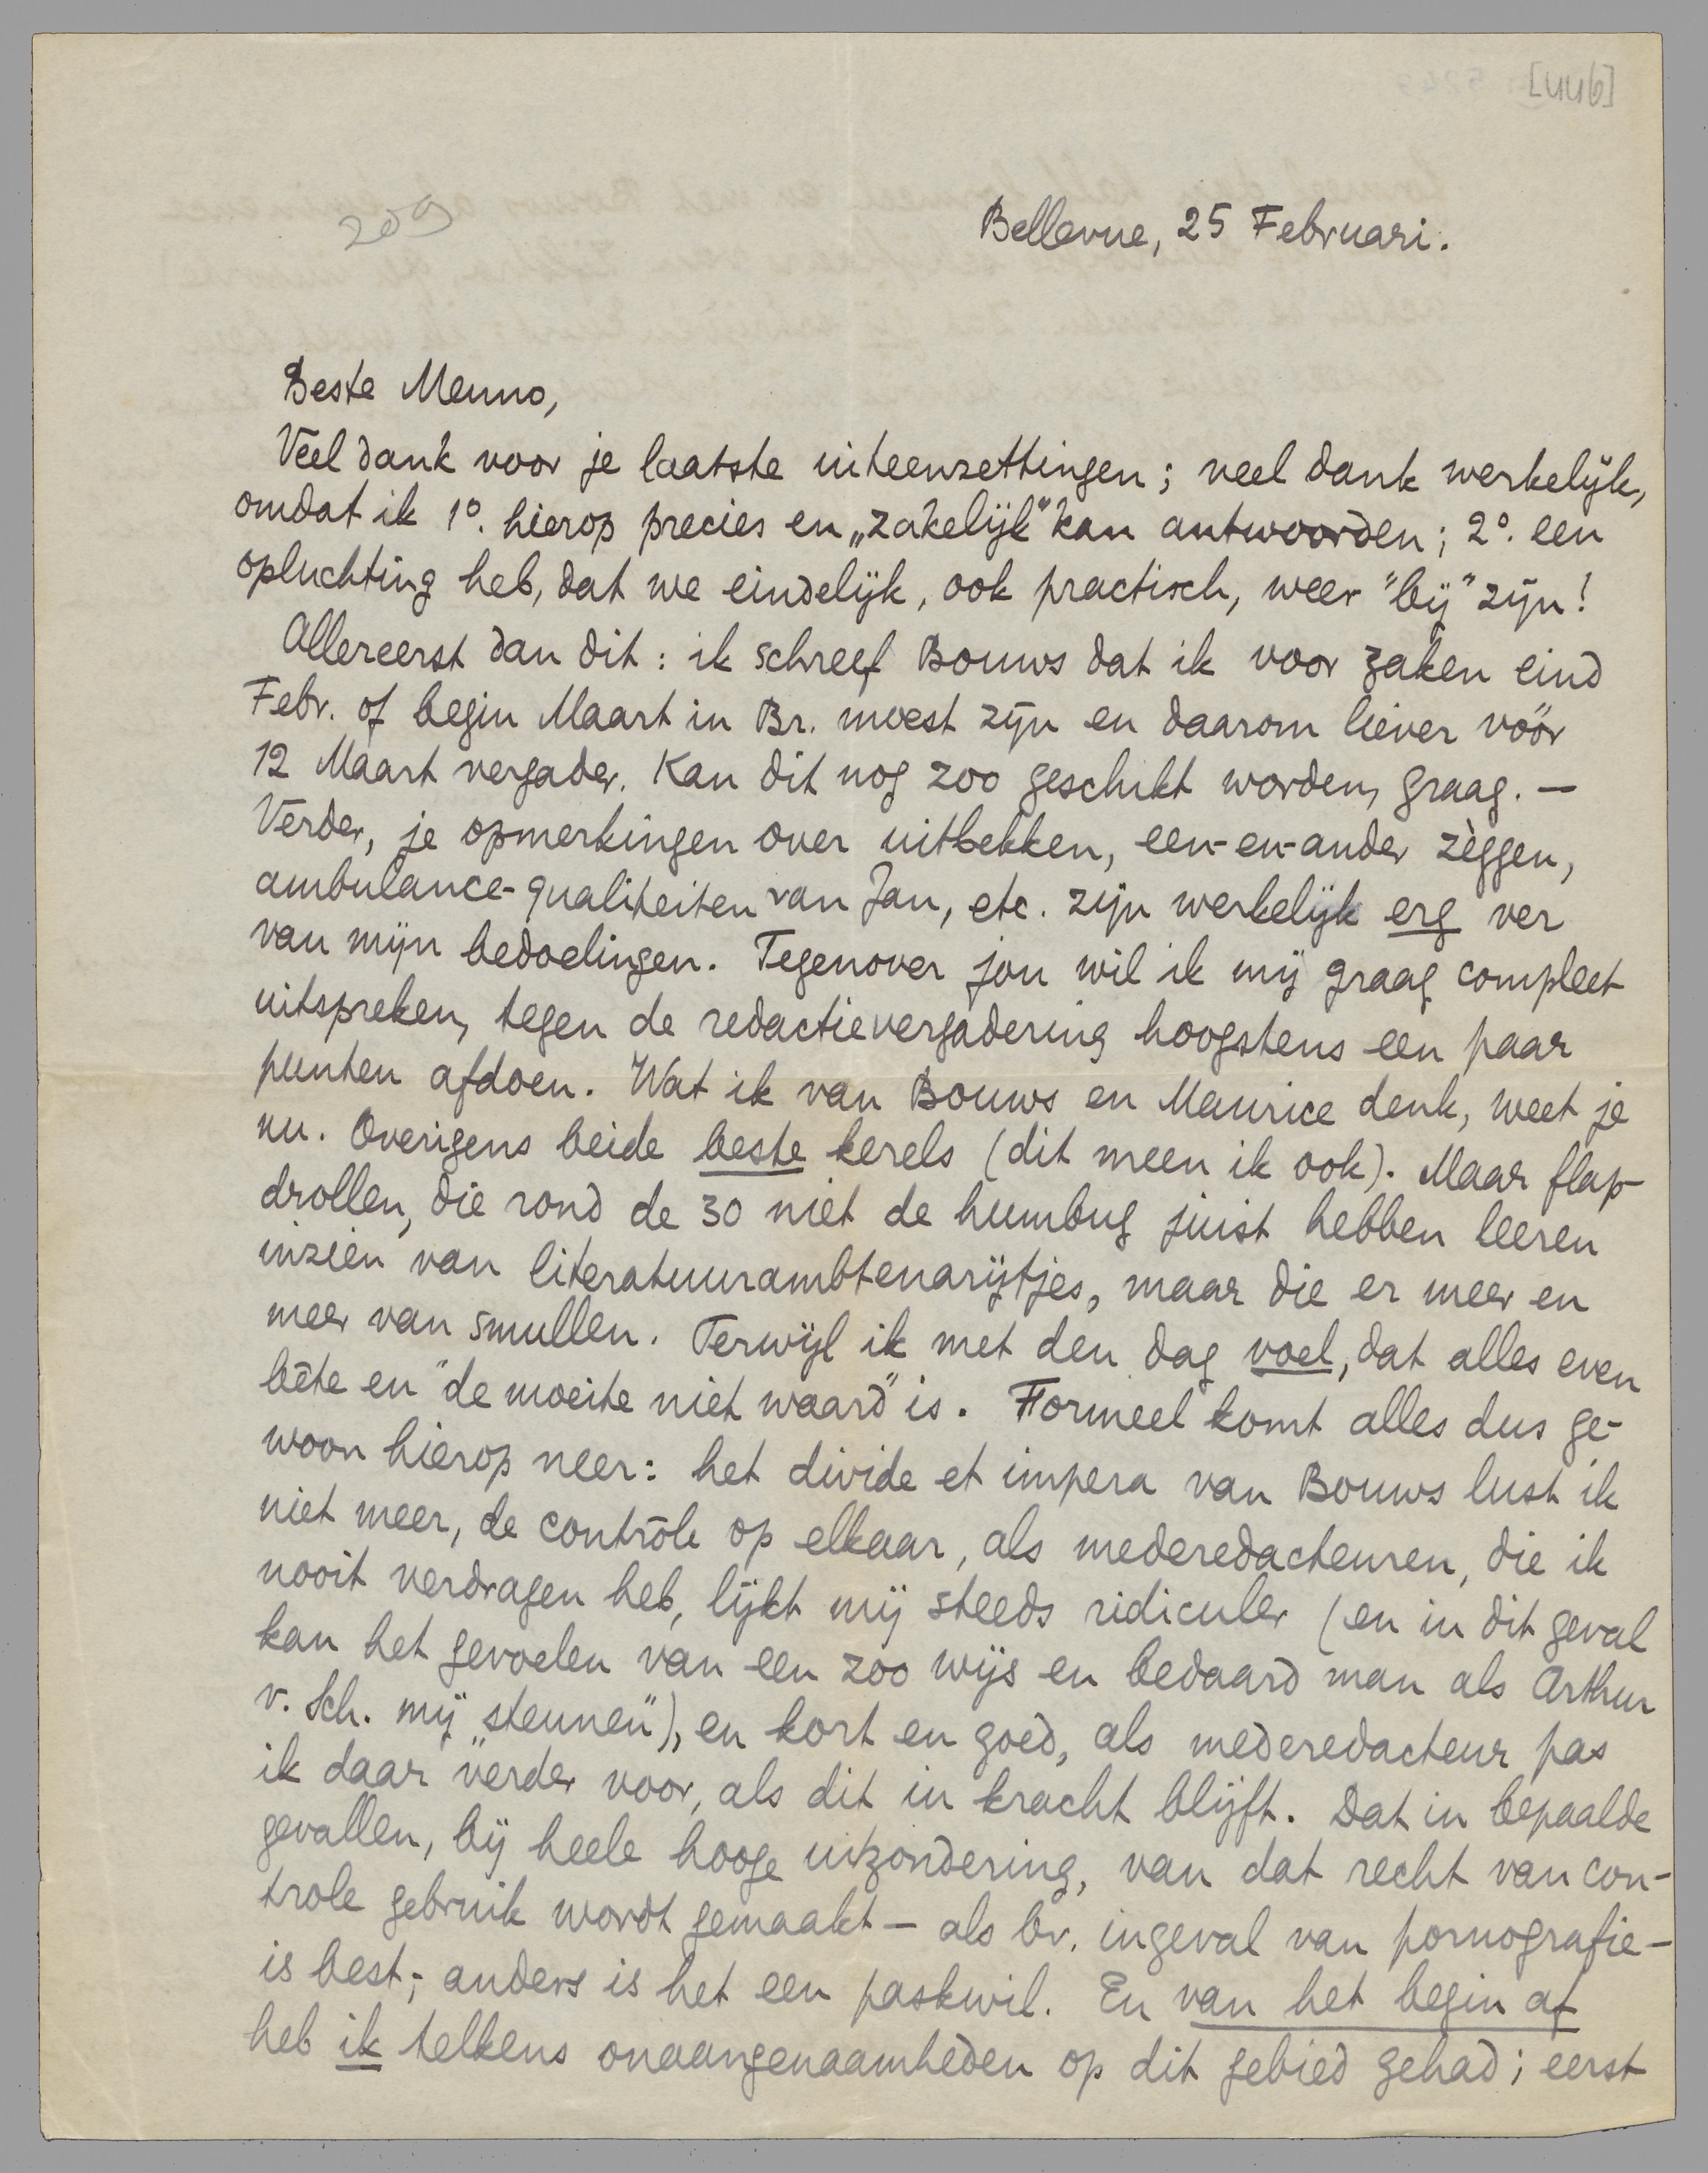 [446]
209
Bellevue, 25 Februari.
Beste Menno,
Veel dank voor je laatste uiteenzettingen; veel dank werkelijk,
omdat ik 1°. hierop precies en „zakelijk” kan antwoorden; 2°. een
opluchting heb, dat we eindelijk, ook practisch, weer "bij" zijn!
Allereerst dan dit: ik schreef Bouws dat ik voor zaken eind
Febr. of begin Maart in Br. moest zijn en daarom liever vóór
12 Maart vergader. Kan dit nog zoo geschikt worden, graag. —
Verder, je opmerkingen over uitbekken, een-en-ander zèggen,
ambulance-qualiteiten van Jan, etc. zijn werkelijk erg ver
van mijn bedoelingen. Tegenover jou wil ik mij graag compleet
uitspreken, tegen de redactievergadering hoogstens een paar
punten afdoen. Wat ik van Bouws en Maurice denk, weet je
nu. Overigens beide beste kerels (dit meen ik ook). Maar flap-
drollen, die rond de 30 niet de humbug juist hebben leeren
inzien van literatuurambtenarijtjes, maar die er meer en
meer van smullen. Terwijl ik met den dag voel, dat alles even
bête en "de moeite niet waard" is. Formeel komt alles dus ge-
woon hierop neer: het divide et impera van Bouws lust ik
niet meer, de contrôle op elkaar, als mederedacteuren, die ik
nooit verdragen heb, lijkt mij steeds ridiculer (en in dit geval
kan het gevoelen van een zoo wijs en bedaard man als Arthur
v. Sch. mij "steunen"), en kort en goed, als mederedacteur pas
ik daar verder voor, als dit in kracht blijft. Dat in bepaalde
gevallen, bij heele hooge uitzondering, van dat recht van con-
trole gebruik wordt gemaakt — als bv. ingeval van pornografie —
is best; anders is het een paskwil. En van het begin af
heb ik telkens onaangenaamheden op dit gebied gehad; eerst